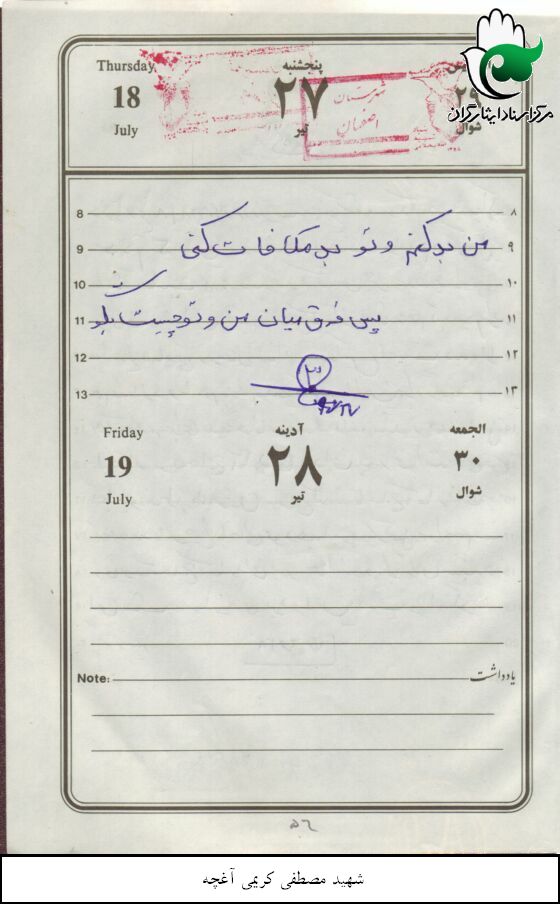 Thursday پنجشنبه
18 ۲۷ ۲۹
July تیر شوال
شهرستان
اصفهان
مرکز اسناد ایثارگران
8 ۸
9 من بد کنم و تو بد مکافات کنی ۹
10 ۱۰
11 پس فرق میان من و تو چیست بگو ۱۱
12 ۱۲
۳
13 ۱۳
Friday آدینه الجمعه
19 ۲۸ ۳۰
July تیر شوال
Note: یادداشت
۵۶
شهید مصطفی کریمی آغچه